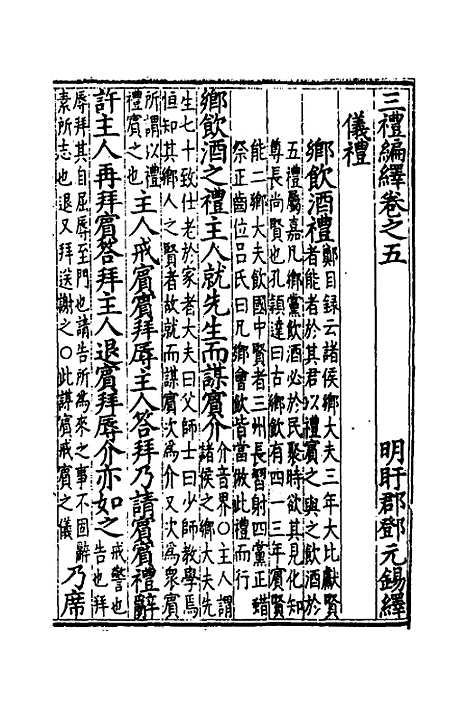 三禮編繹卷之五
明盱郡鄧元錫繹
儀禮
鄉飲酒禮鄭目録云諸侯鄉大夫三年大比獻賢
者能者於其君以禮賓之與之飲酒於
五禮屬嘉凡鄉黨飲酒必於民聚時欲其見化知
尊長尚賢也孔頴達曰古鄉飲有四一三年賓賢
能二鄉大夫飲國中賢者三州長習射四黨正蜡
祭正齒位吕氏曰凡鄉會飲皆當做此禮而行
鄉飲酒之禮主人就先生而謀賓介介音界○主人謂
諸侯之鄉大夫先
生七十致仕老於家老大夫曰父師士曰少師教學焉
恒知其鄉人之賢者故就而謀賓次為介又次為衆賓
所謂以禮
禮賓之也主人戒賓賓拜辱主人答拜乃請賓賓禮辭
許主人再拜賓答拜主人退賓拜辱介亦如之戒警也
告也拜
辱拜其自屈辱至門也請告所為來之事不固辭
素所志也退又拜送謝之○此謀賓戒賓之儀乃席